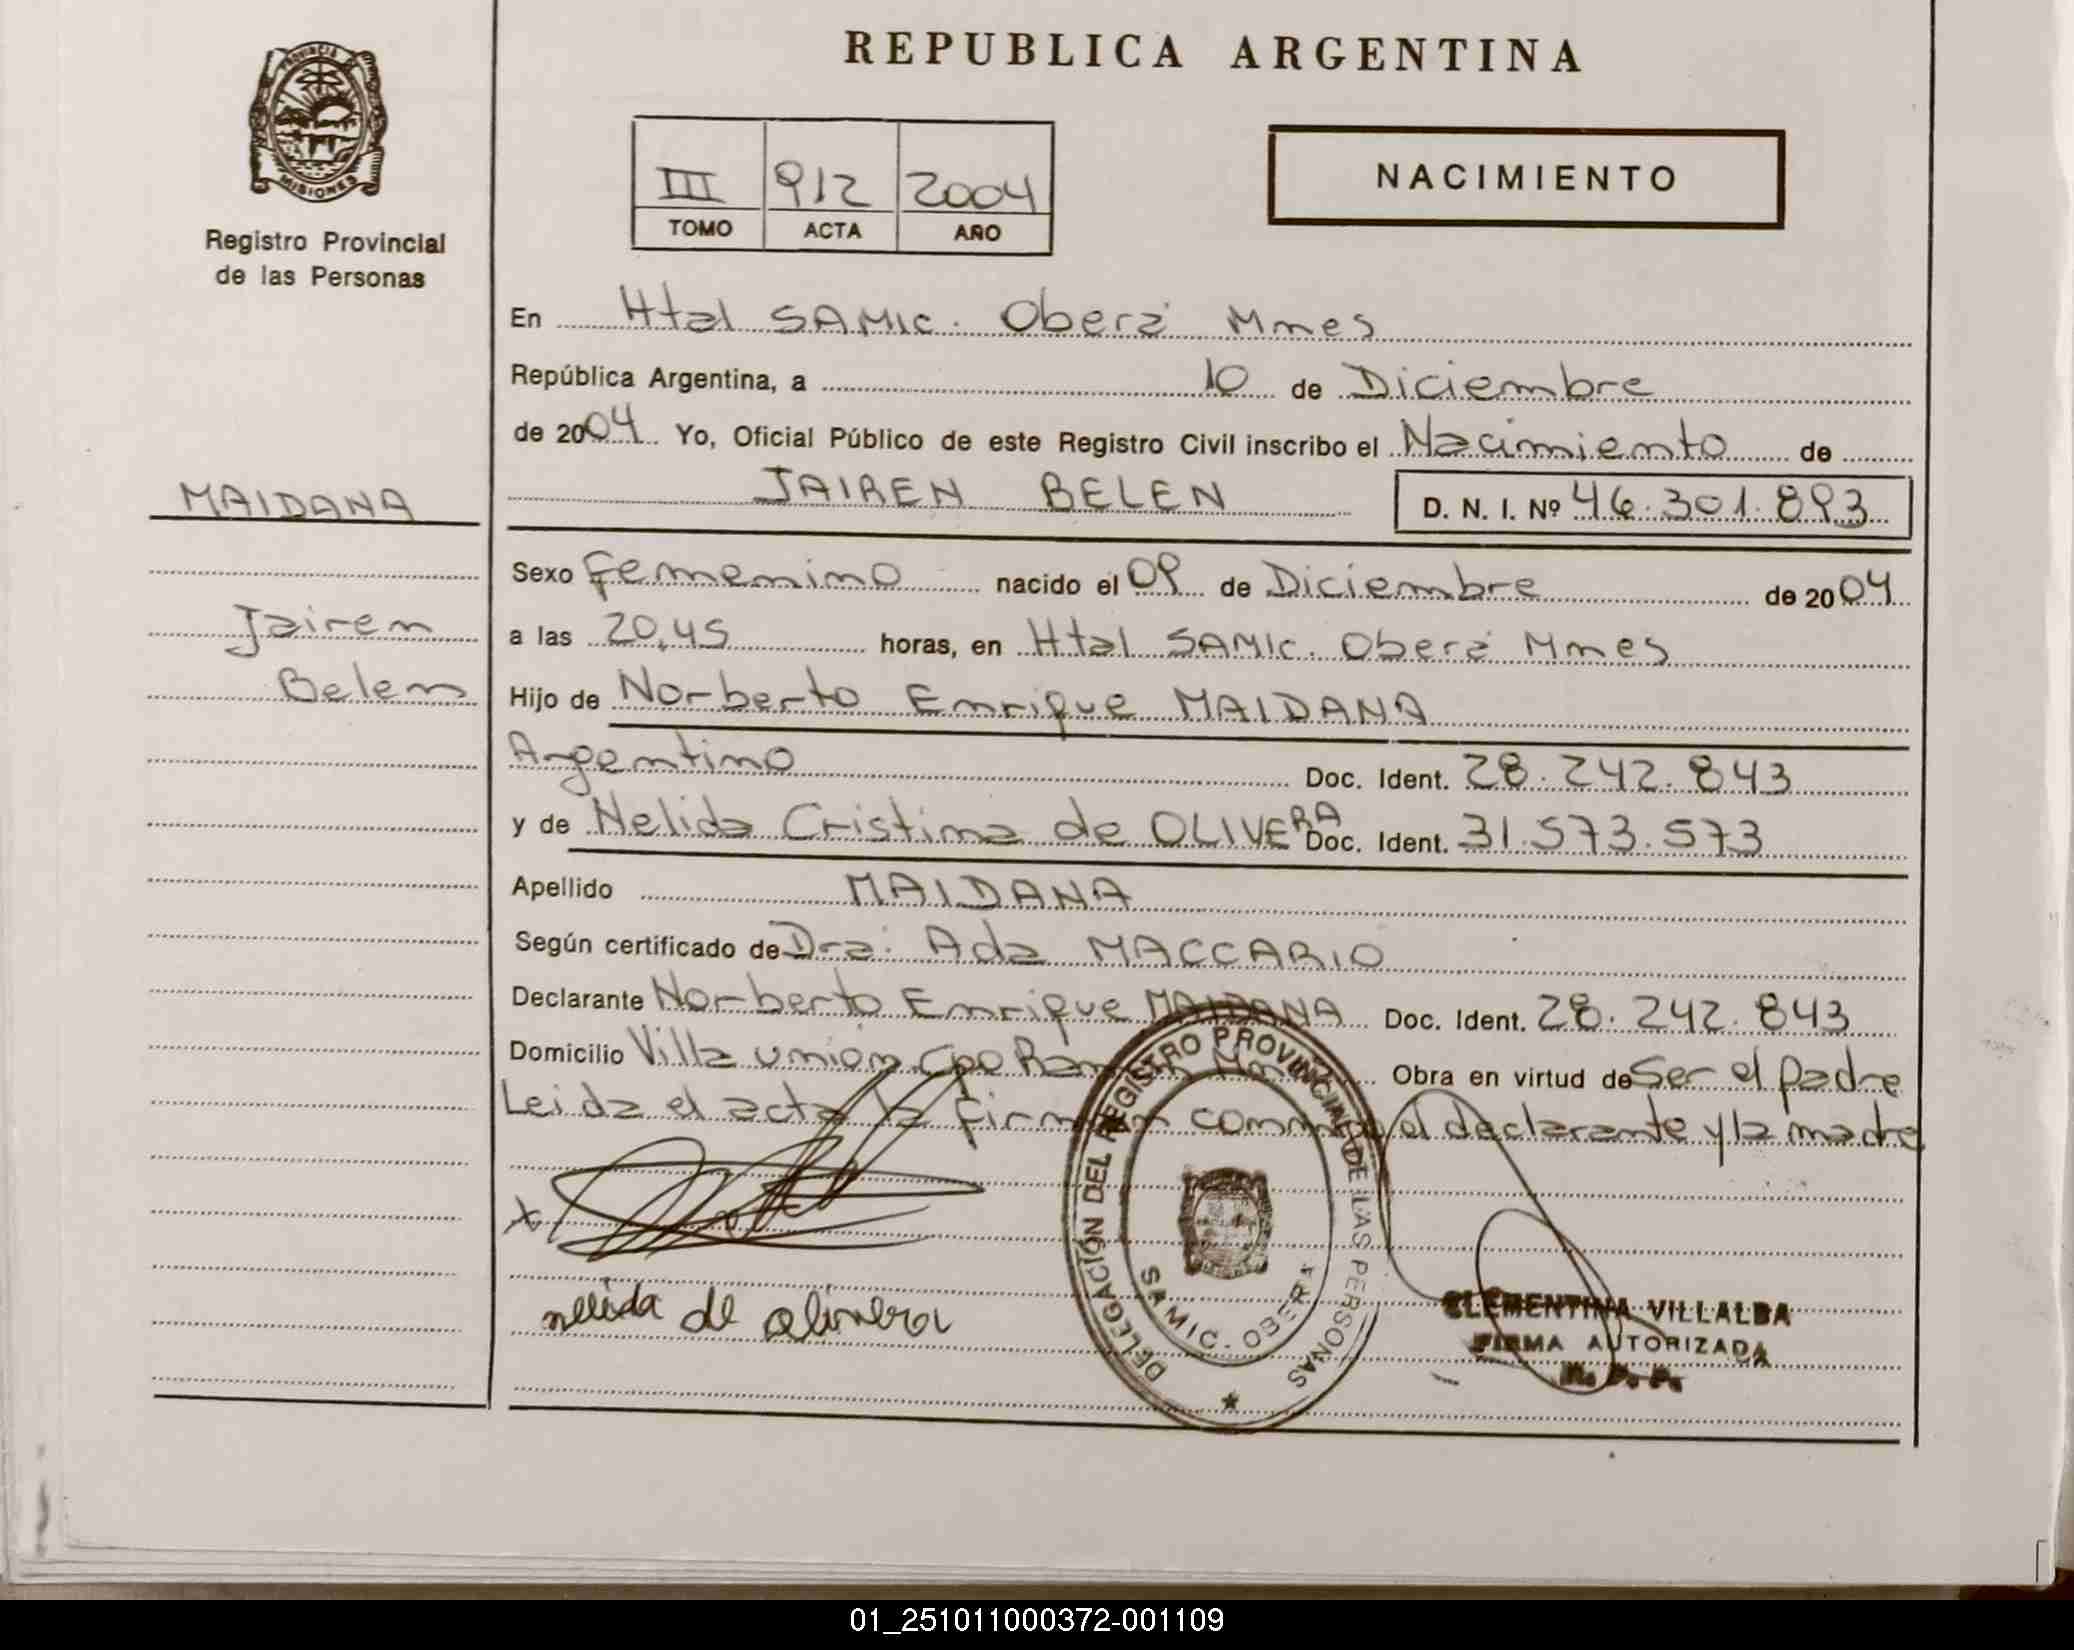 PROVINCIA DE
MISIONES
Registro Provincial
de las Personas
MAIDANA
Jairen
Belen
REPUBLICA ARGENTINA
III 912 2004
TOMO ACTA AÑO
NACIMIENTO
En Htal SAMIC. Oberá Mnes
República Argentina, a 10 de Diciembre
de 2004 Yo, Oficial Público de este Registro Civil inscribo el Nacimiento de
JAIREN BELEN D. N. I. Nº 46.301.893
Sexo Femenino nacido el 09 de Diciembre de 2004
a las 20,45 horas, en Htal SAMIC. Oberá Mnes
Hijo de Norberto Enrique MAIDANA
Argentino Doc. Ident. 28.242.843
y de Nelida Cristina de OLIVERA Doc. Ident. 31.573.573
Apellido MAIDANA
Según certificado de Dra. Ada MACCARIO
Declarante Norberto Enrique MAIDANA Doc. Ident. 28.242.843
Domicilio Villa unión Cpo Ramón Mnes Obra en virtud de Ser el padre
Leida el acta la firman conmigo el declarante y la madre
x
nelida de olivera
DELEGACIÓN DEL REGISTRO PROVINCIAL DE LAS PERSONAS
SAMIC. OBERA
CLEMENTINA VILLALBA
FIRMA AUTORIZADA
R. P. P.
01_251011000372-001109